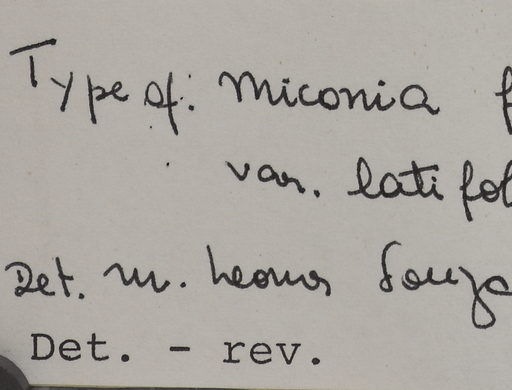 Type of: Miconia f
var. latifol
Det. M. Leoni Souza
Det. - rev.